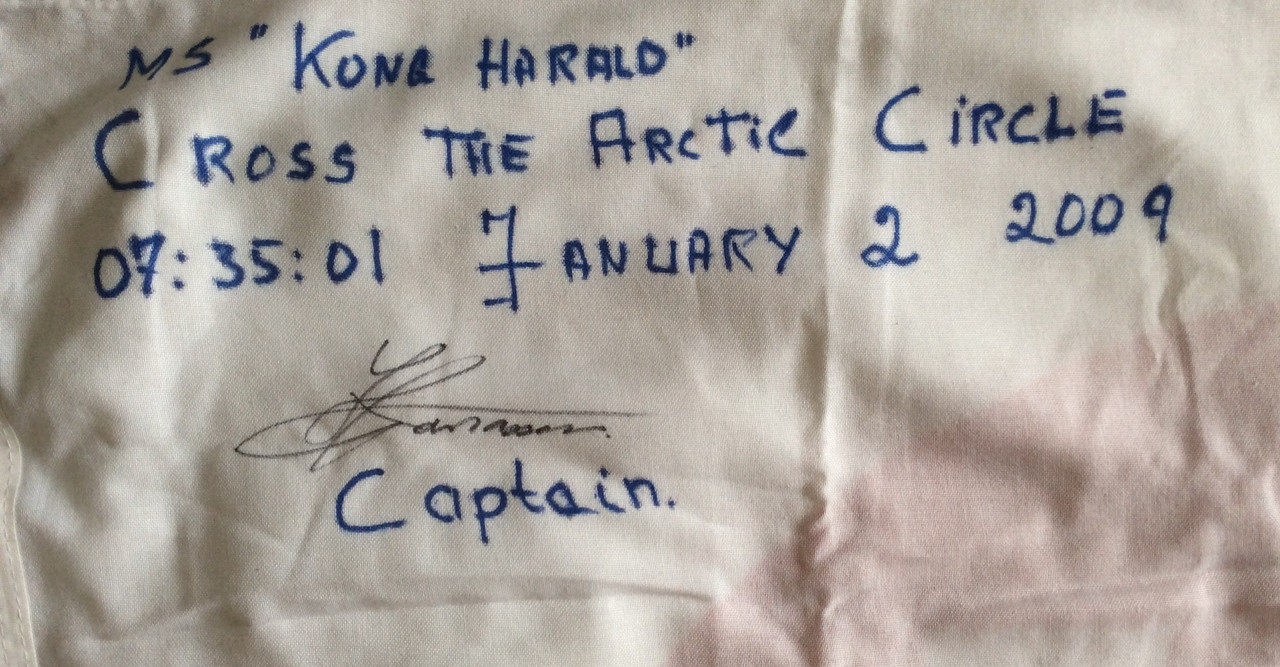 MS "KONG HARALD"
CROSS THE ARCTIC CIRCLE
07:35:01 JANUARY 2 2009
Captain.